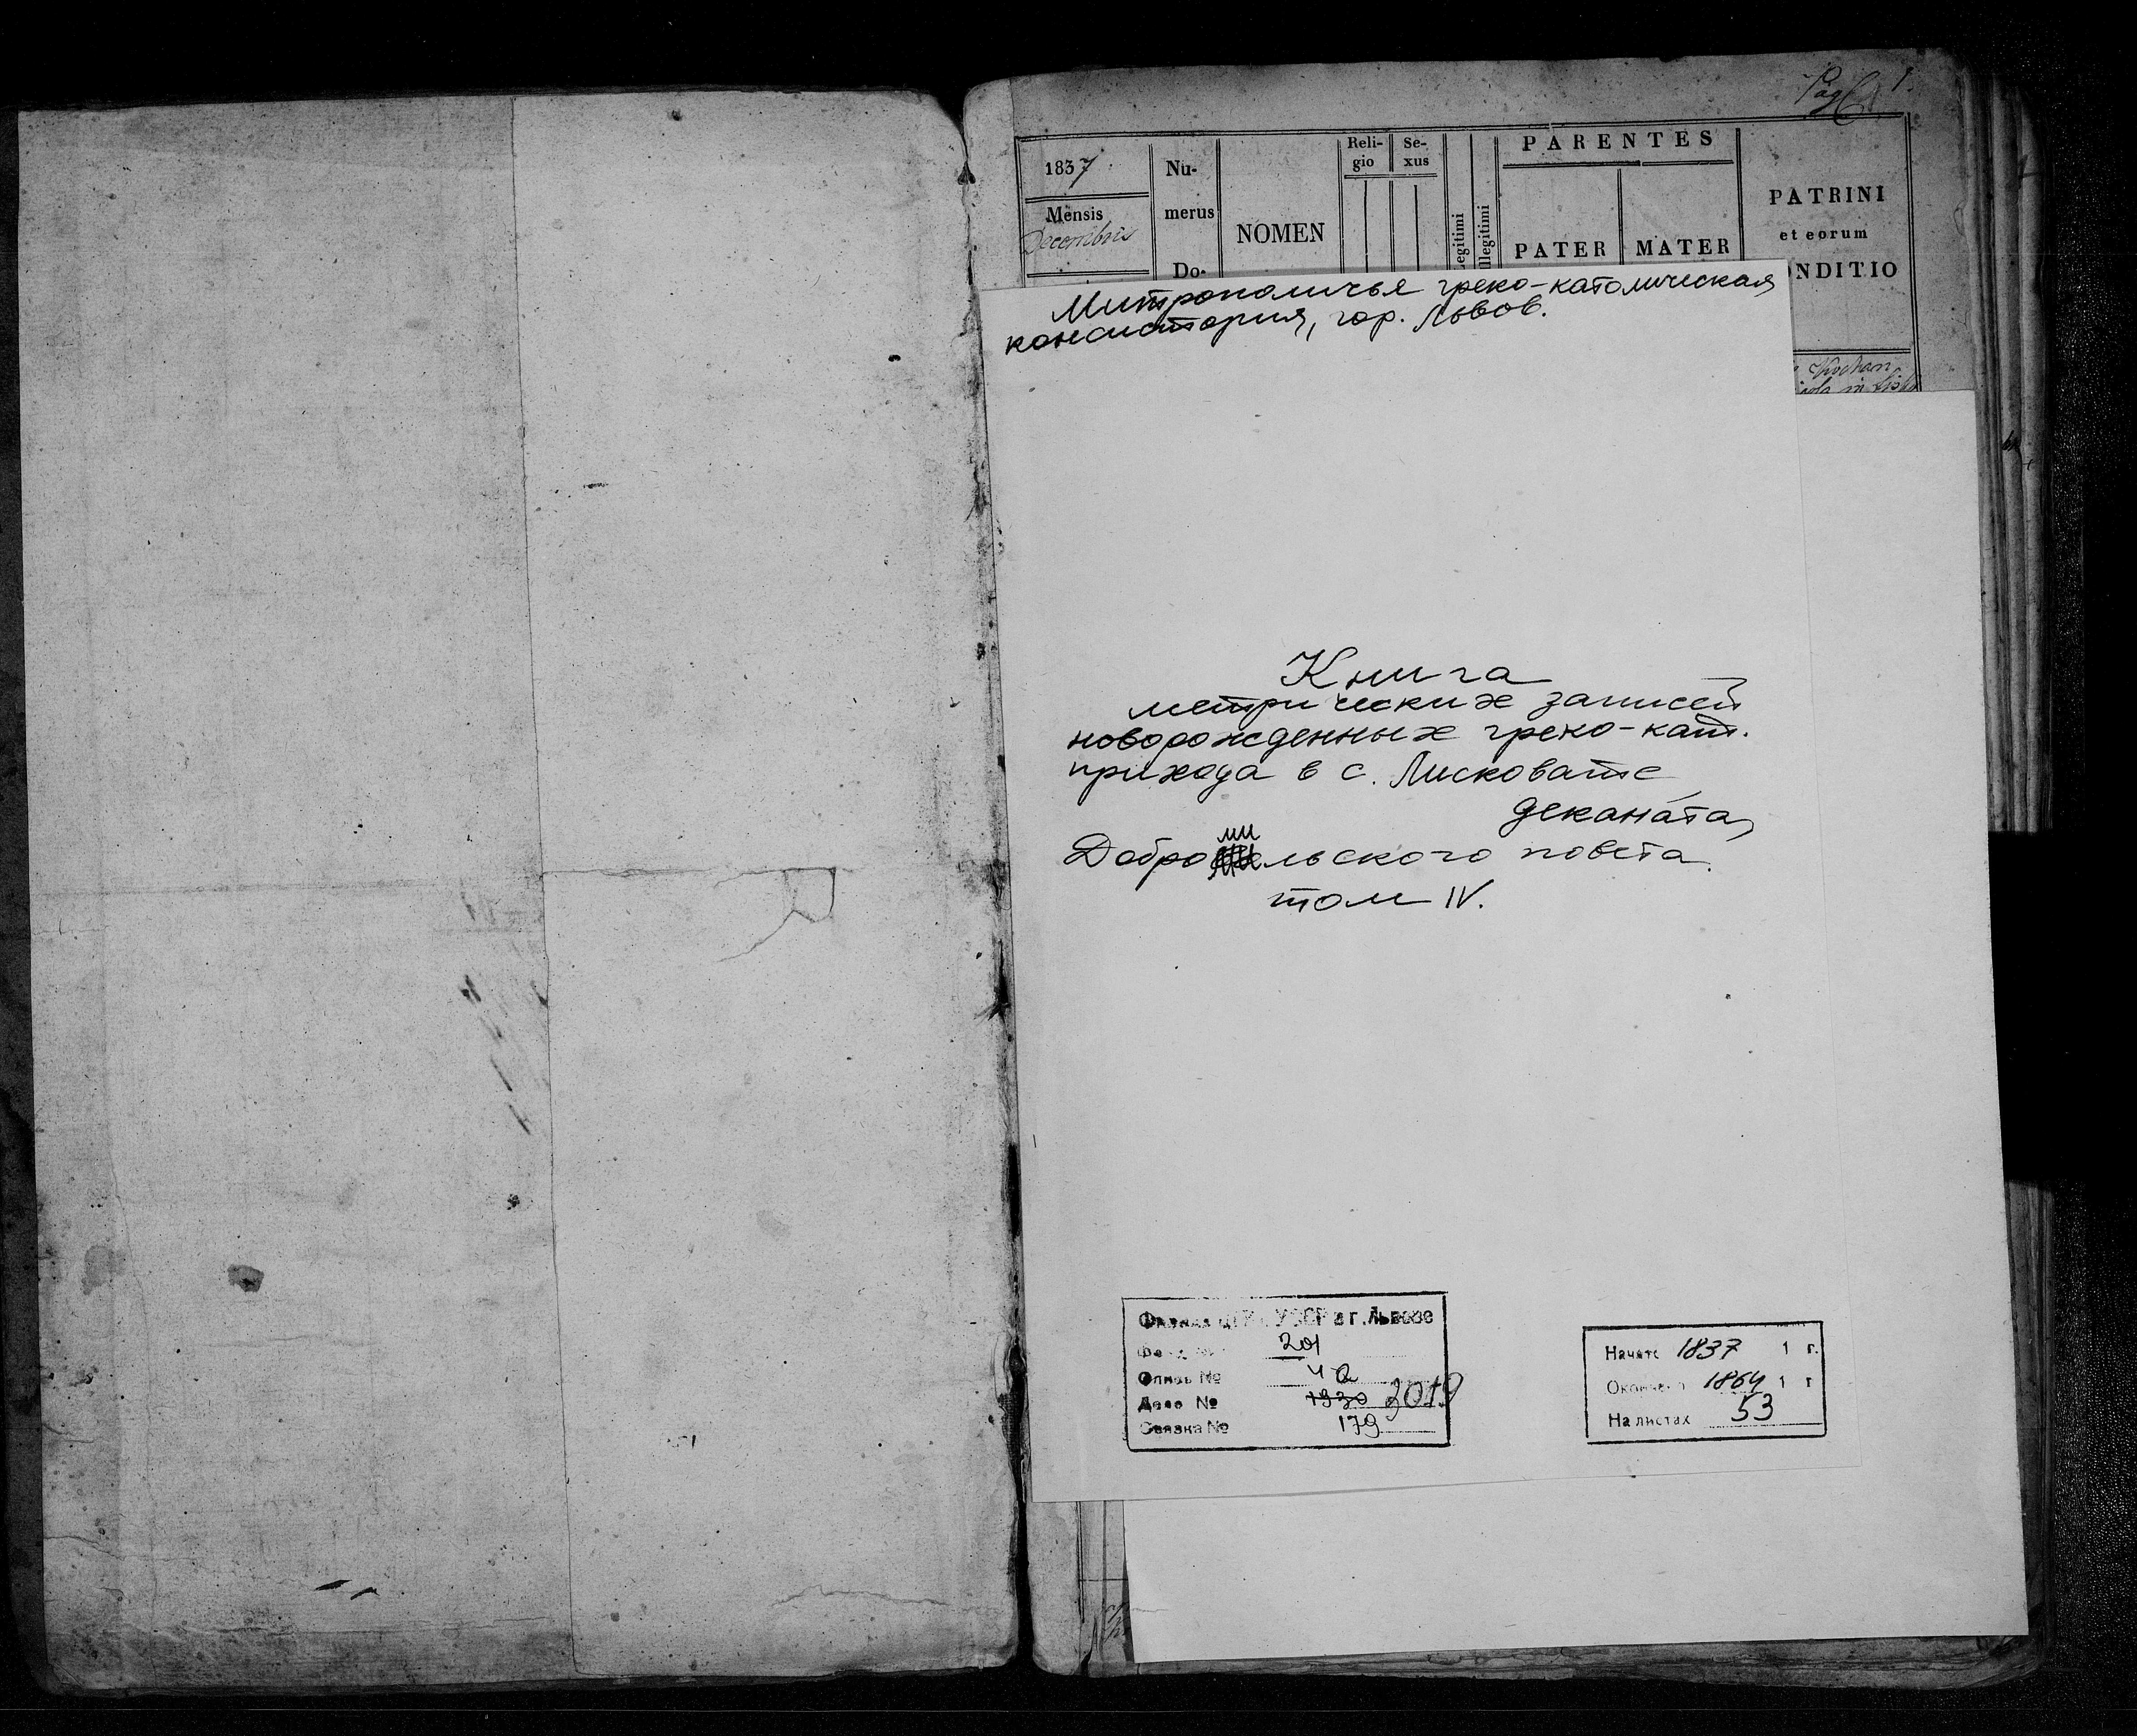 Pag 1.
1837.
Mensis
Decembris
Nu-
merus
Do-
NOMEN
Reli-
gio
Se-
xus
Legitimi
Illegitimi
PARENTES
PATER
MATER
PATRINI
et eorum
CONDITIO
Митрополичья греко-католическая
консистория, гор. Львов.
Книга
метрических записей
новорожденных греко-кат.
прихода в с. Лисковате
деканата,
Добромильского повета.
том IV.
УССР в г. Львове
201
Опись № 4а
Дело № 1930 3019
Связка № 179
Начато 1837 1 г.
Окончено 1864 1 г
На листах 53